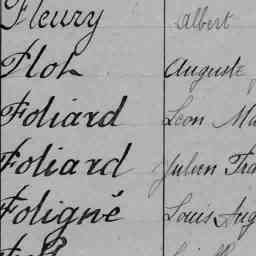 Fleury Albert
Floh Auguste
Foliard Léon
Foliard Julien
Foligné Louis